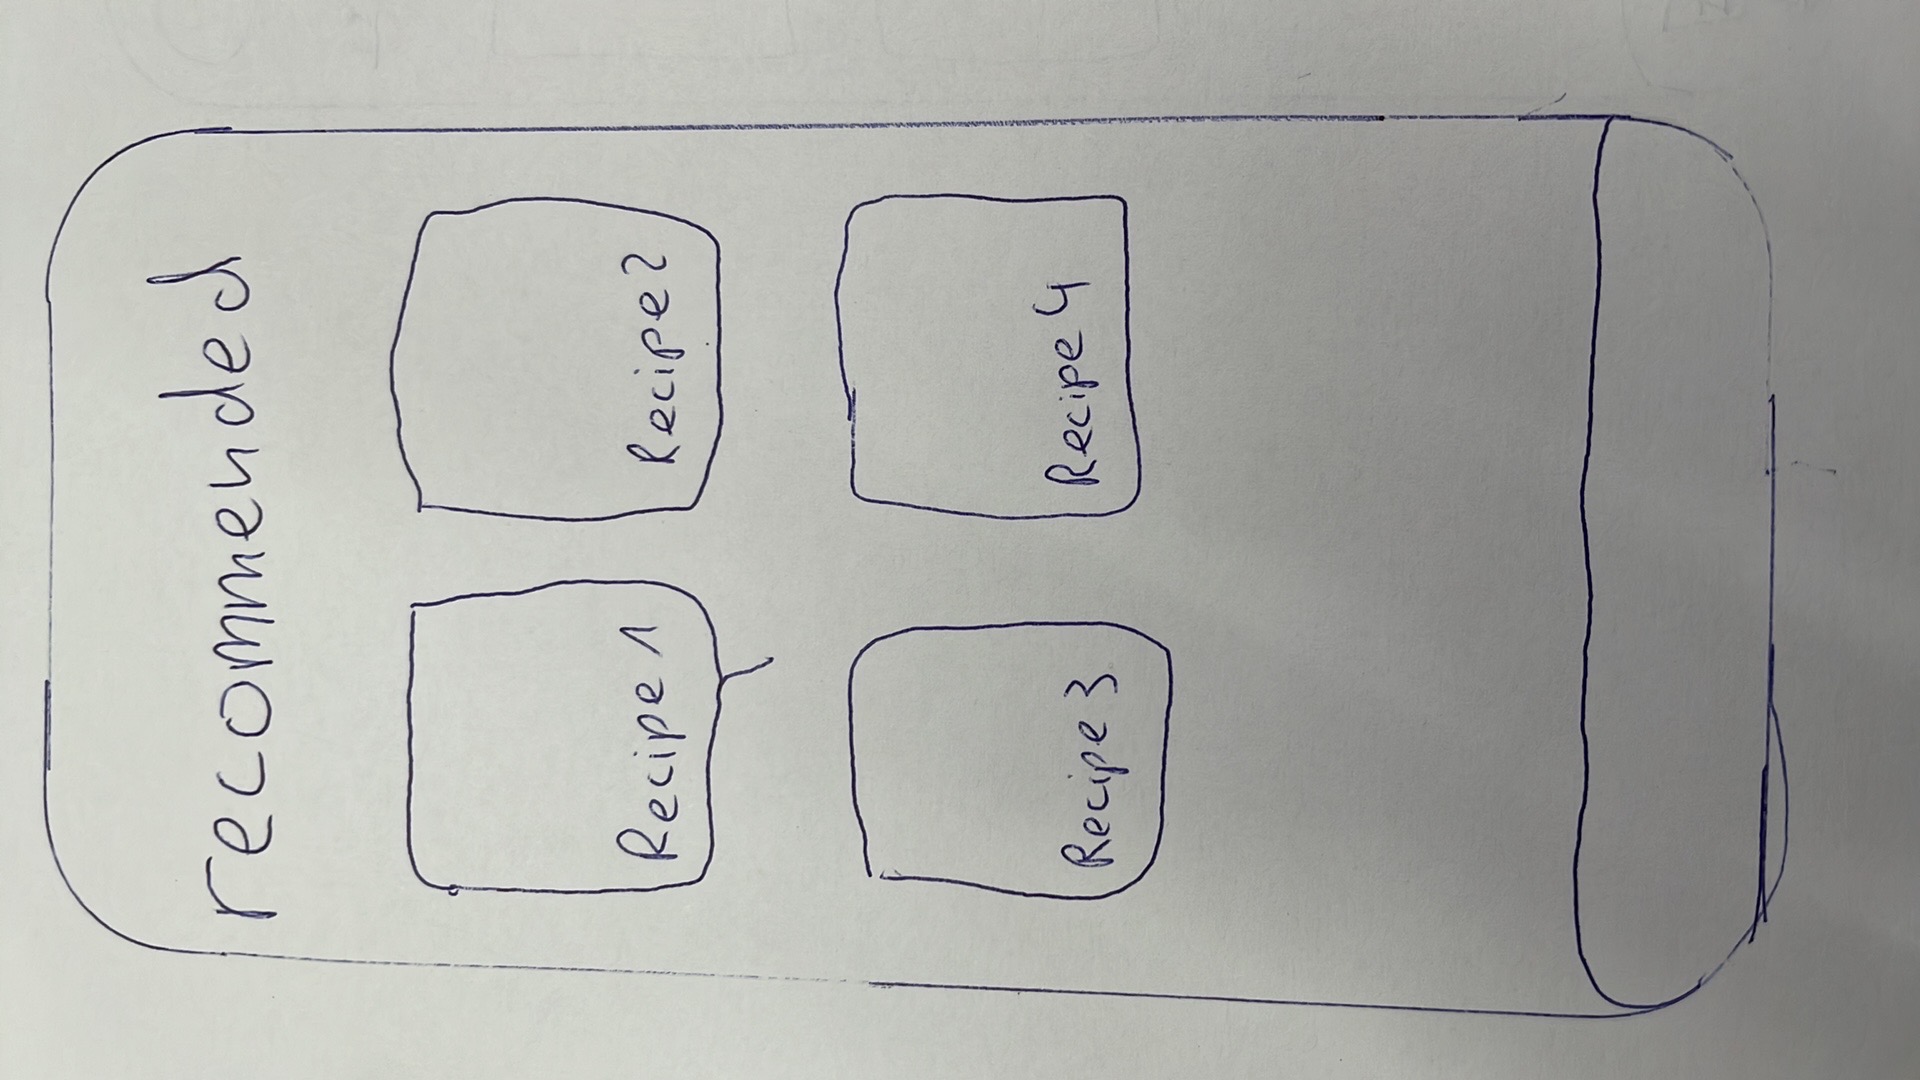 recommended
Recipe 1 Recipe 2
Recipe 3 Recipe 4